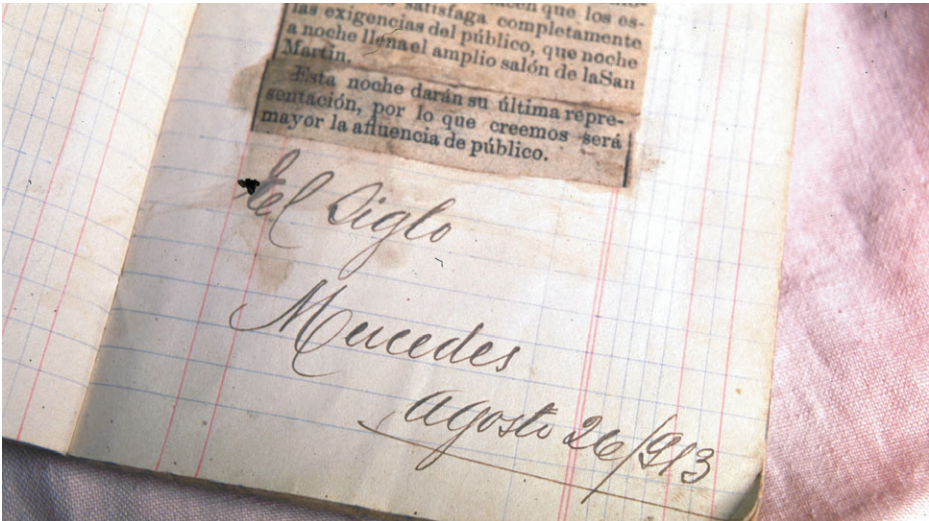 que los es-
satisfaga completamente
las exigencias del público, que noche
a noche llena el amplio salón de laSan
Martin.
Esta noche darán su última repre-
sentación, por lo que creemos será
mayor la afluencia de público.
El Siglo
Mercedes
Agosto 26/913